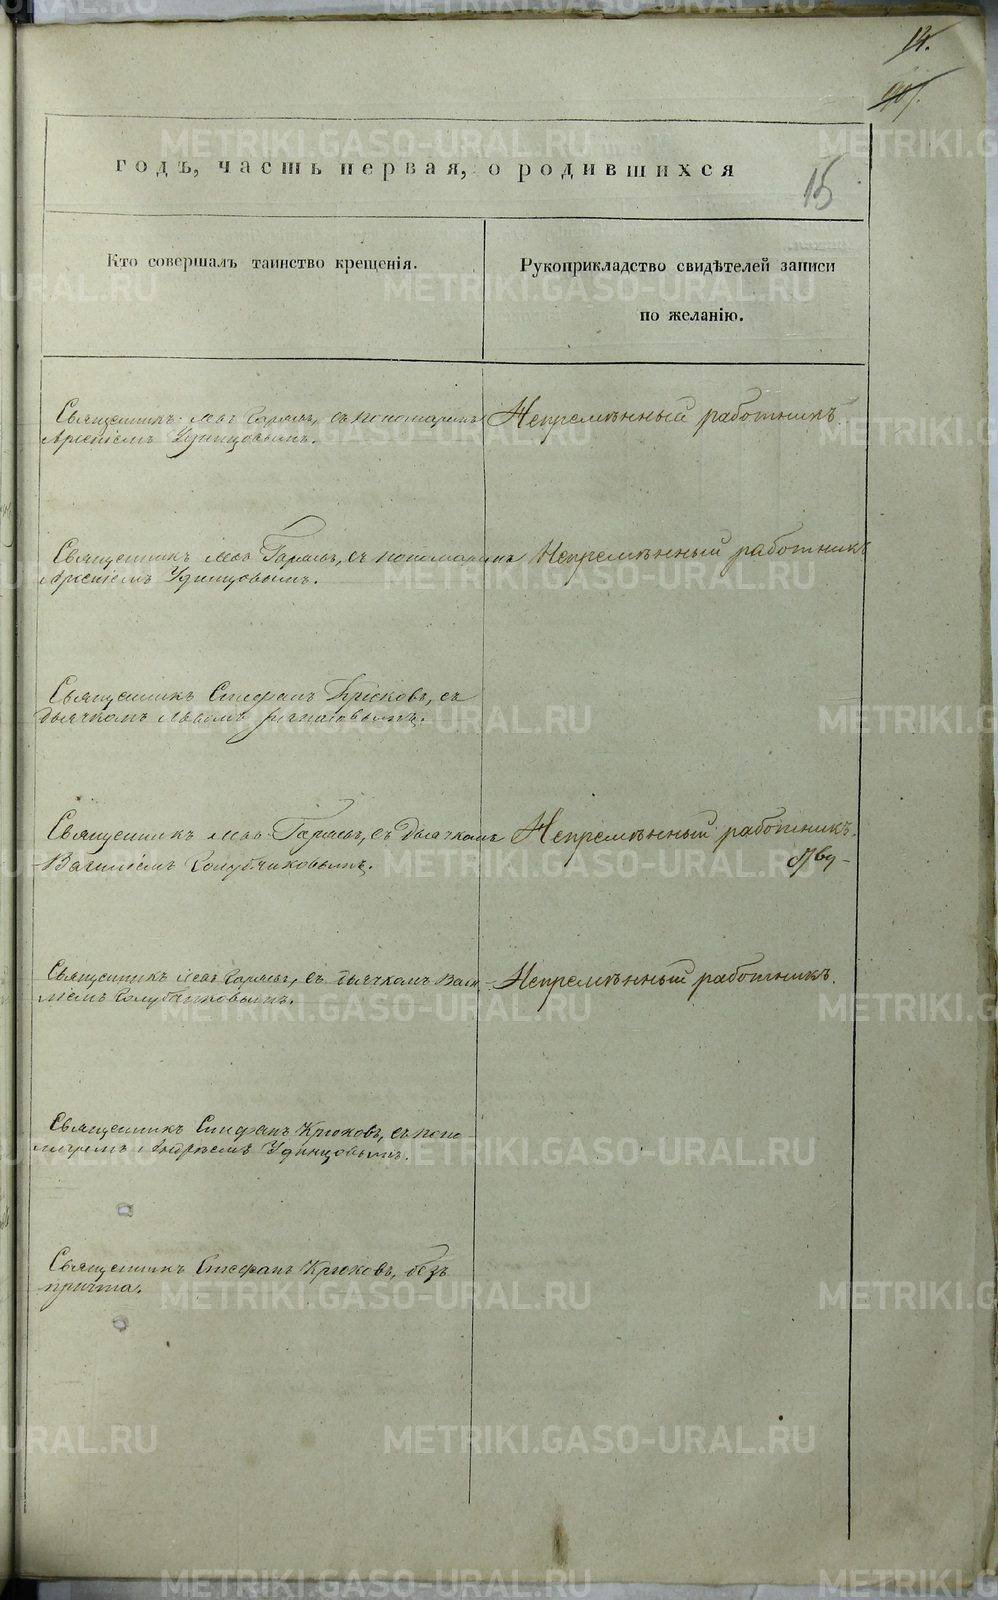 14.
15
годъ, часть первая, о родившихся
Кто совершалъ таинство крещенія.
Рукоприкладство свидѣтелей записи
по желанію.
Священникъ Левъ Гаряевъ, съ пономаремъ
Арсеніемъ Удинцовымъ.
Непремѣнный работникъ
Священникъ Левъ Гаряевъ, съ пономаремъ
Арсеніемъ Удинцовымъ.
Непремѣнный работникъ
Священникъ Стефанъ Крюковъ, съ
дьячкомъ
Священникъ Левъ Гаряевъ, съ Дьячкомъ
Василіемъ Голубчиковымъ.
Непремѣнный работникъ.
Священникъ Левъ Гаряевъ, съ дьячкомъ Васи-
ліемъ Голубчиковымъ.
Непремѣнный работникъ.
Священникъ Стефанъ Крюковъ, съ поно-
маремъ Удинцовымъ.
Священникъ Стефанъ Крюковъ, безъ
причта.
METRIKI.GASO-URAL.RU